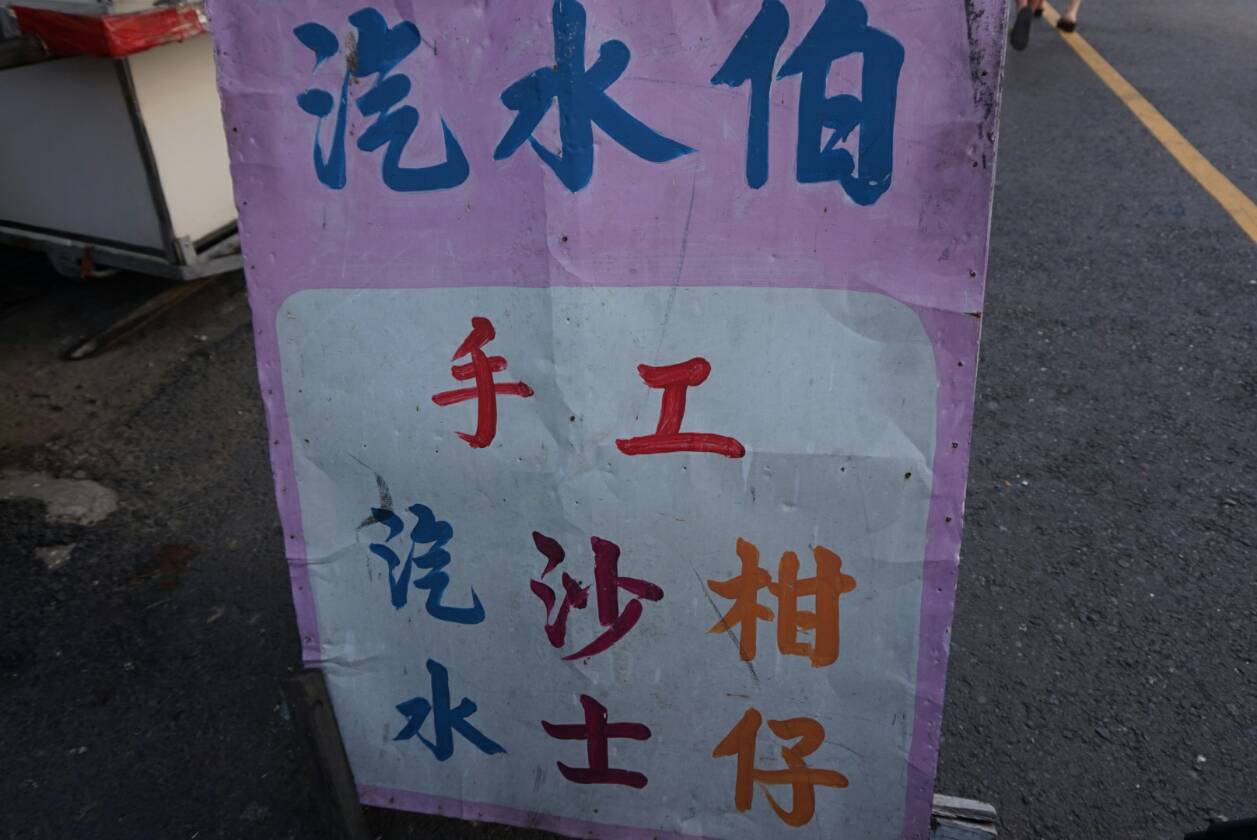 汽水伯
手工
汽水
沙士
柑仔